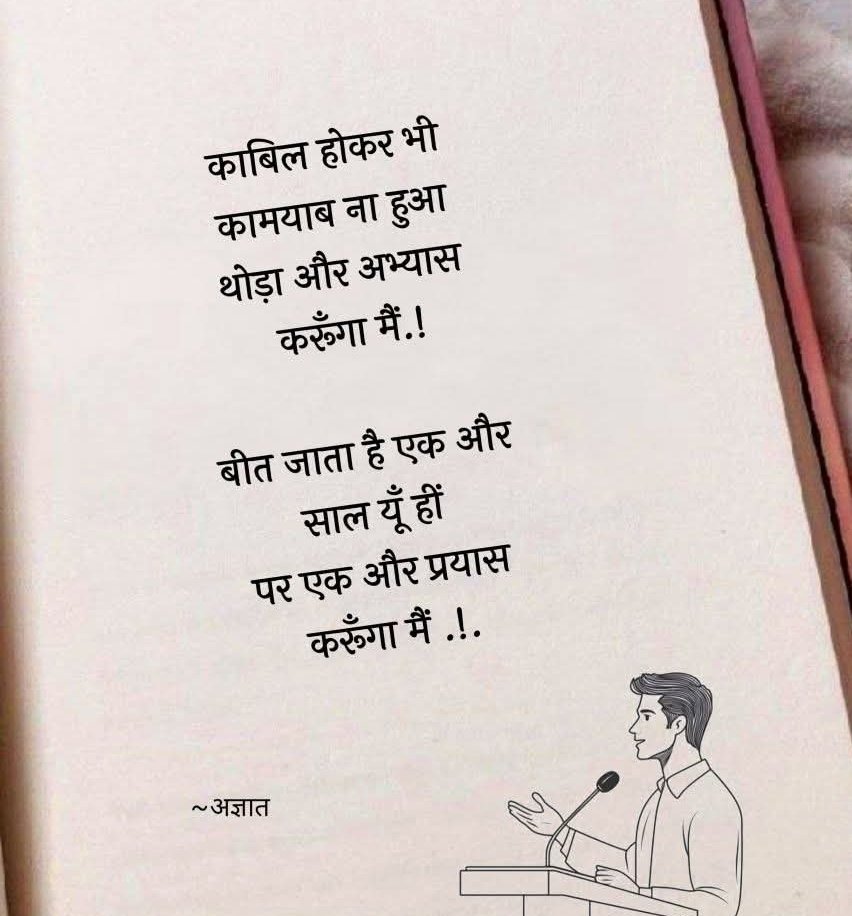 काबिल होकर भी
कामयाब ना हुआ
थोड़ा और अभ्यास
करूँगा मैं.!
बीत जाता है एक और
साल यूँ हीं
पर एक और प्रयास
करूँगा मैं .!.
~अज्ञात